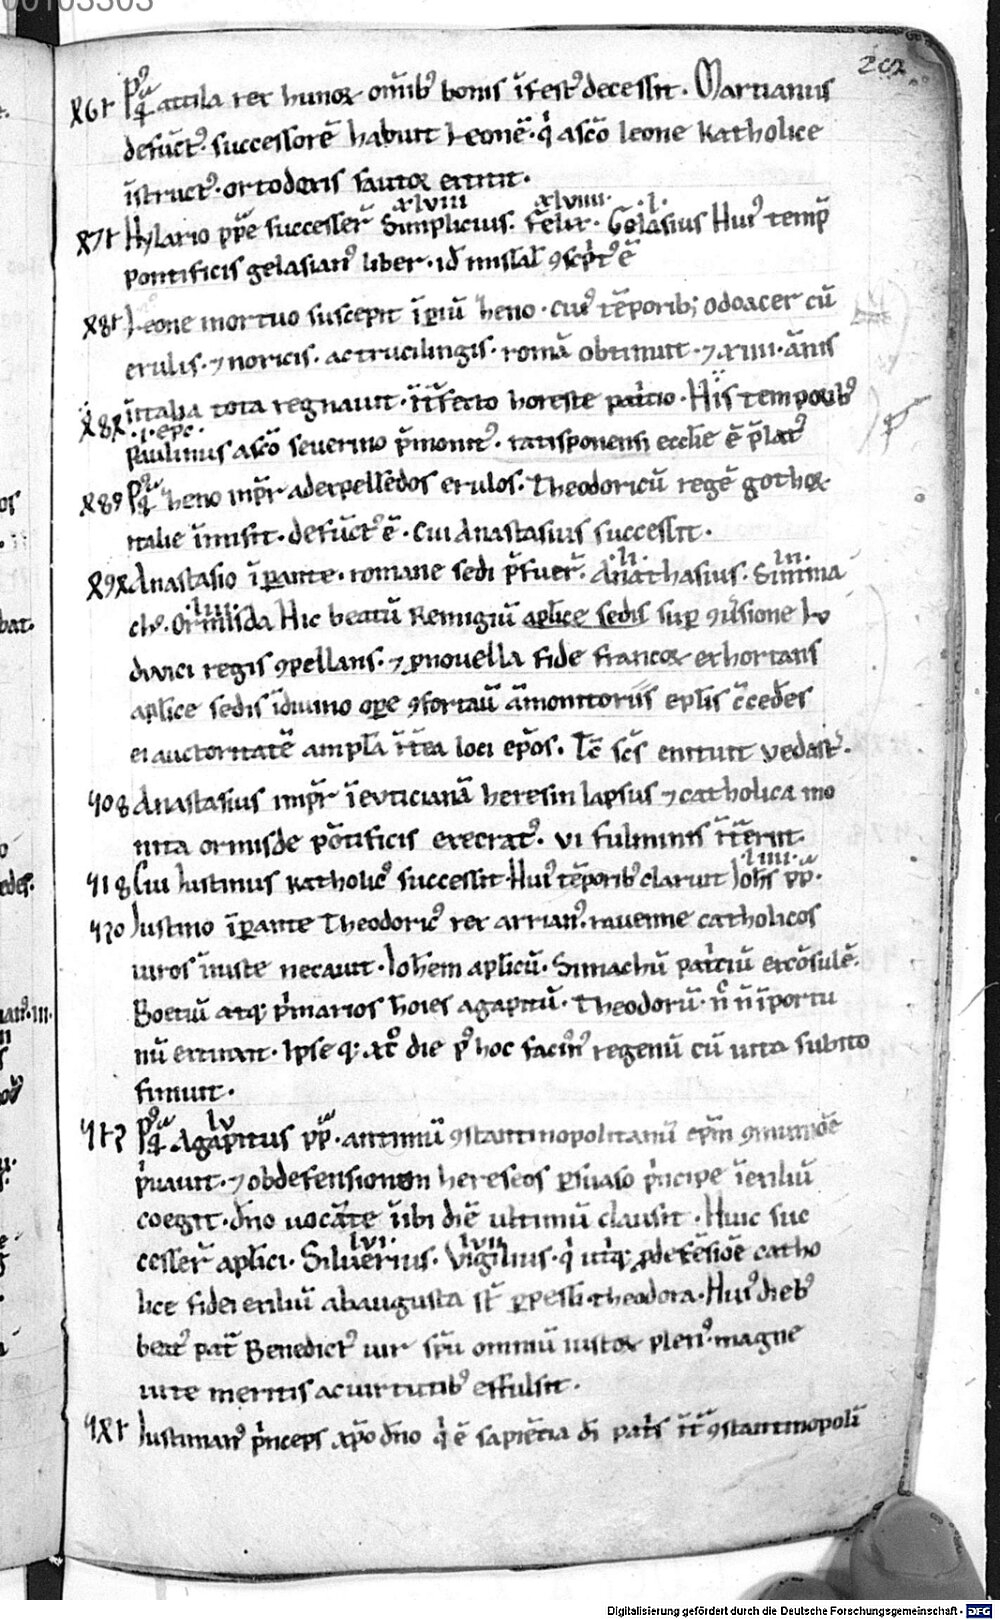 00103303
202
attila rex hunoꝝ om̅ib; bonis ı̅fest᷒ decessit. Martianus
defu̅ct᷒ successore̅ habuit Leone̅. q̇ asc̅o leone katholice
ı̅struct᷒. ortodoxis fautor extitit.
xlviii xlviiii. .l.
Hylario pp̅e successer̅ Simplicius. Felix. Gelasius Hui᷒ temp̅
pontificis gelasian᷒ liber. id̅ missal̅ ꝯsc̅pt᷒ e̅
Leone mortuo suscepit ı̅ꝑiu̅ heno. cui᷒ te̅porib; odoacer cu̅
erulis. ⁊ noricis. ac trucilingis. roma̅ obtinuit. ⁊ xiiii. a̅nis
ı̅italia tota regnauit. ı̅t̅fecto horeste pat̍cio. His temporib᷒
.i. ep̅c.
Paulinus asc̅o seuerino p̅monit᷒. ratisponensi eccl̅ie e̅ p̅lat᷒
heno imp̅r adexpelle̅dos erulos. Theodoricu̅ rege̅ gothoꝝ
italie i̅misit. defu̅ct᷒ e̅. cui Anastasius successit.
.li. lii.
Anastasio ı̅ꝑante. romane sedi p̅fuer̅. Anathasius. Simma
.liii.
ch᷒. Ormisda Hic beatu̅ Remigiu̅ apl̅ice sedis sup ꝯu̅sione Lo
douici regis ꝯpellans. ⁊ ꝓnouella fide francoꝝ exhortans
apl̅ice sedis i̅diuino oꝑe ꝯfortau̅ a̅monitoriis epl̅is c̅cede̅s
ei auctoritate̅ ampla̅ ı̅t̅ea loci ep̅os. Tc̅ sc̅s enituit vedast᷒.
408 Anastasius imp̅r ı̅ euticiana̅ heresin lapsus ⁊ catholica mo
nita ormisde po̅tificis execrat᷒. vi fulminis ı̅t̅erit.
liiii.
418 Cui Iustinus katholic᷒ successit. Hui᷒ te̅porib᷒ claruit Ioh̅s pp̅.
420 Iustino ı̅ꝑante Theodoric᷒ rex arrian᷒. rauenne catholicos
uiros i̅iuste necauit. Ioh̅em aplicu̅. Simachu̅ pat̍ciu̅ exco̅sule̅.
Boetiu̅ atq; p̍marios ho̅ies agapitu̅. Theodoru̅. n̅ ı̅portu
nu̅ extinxit. Ipse q; die p᷒ hoc facin᷒ regenu̅ cu̅ uita subito
finiuit.
lv
Agapitus pp̅. antimu̅ ꝯstantinopolitanu̅ ep̅m ꝯmunio̅e
p̍uauit. ⁊ obdefensionem hereseos ꝑsuaso p̍ncipe ı̅exiliu̅
coegit. dn̅o uoca̅te u̅bi die̅ ultimu̅ clausit. Huic suc
lvi. lvii.
cesser̅ apl̅ici. Siluerius. Vigilius. q̇ ut̍q; ꝓdefe̅sio̅e catho
lice fidei exiliu̅ abaugusta st̅ ꝑpessi theodora. Hui᷒ dieb᷒
beat᷒ pat̅ Benedict᷒ uir sp̅u omniu̅ iustoꝝ plen᷒. magne
uite meritis ac uirtutib᷒ effulsit.
Iustinian᷒ p̍nceps xp̅o dn̅o q̇ e̅ sapie̅tia di̅ pat̍s ı̅t̅ ꝯstantinopoli̅
Digitalisierung gefördert durch die Deutsche Forschungsgemeinschaft · DFG